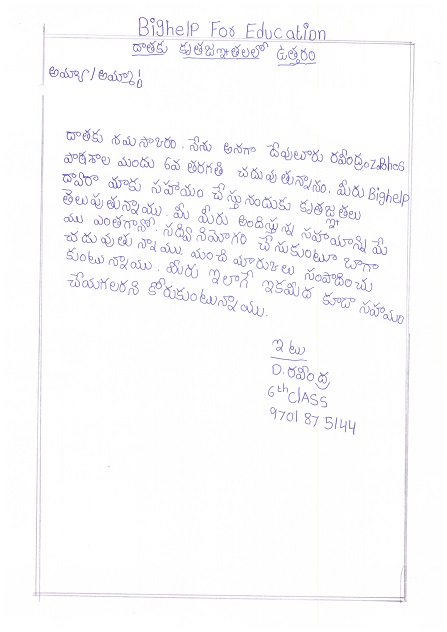 Bighelp For Education
దాతకు కృతజ్ఞతలలో ఉత్తరం
అయ్యా/అమ్మా!
దాతకు నమస్కారం. నేను అనగా దేవులూరు రవీంద్రం ZPBHS
పాఠశాల మందు 6వ తరగతి చదువుతున్నాను. మీరు Bighelp
ద్వారా మాకు సహాయం చేస్తునందుకు కృతజ్ఞతలు
తెలుపుతున్నాము. మీ మీరు అందిస్తున్న సహాయాన్ని మే
ము ఎంతగానో సద్వినిమోగం చేసుకుంటూ బాగా
చదువుతు న్నాము. మంచి మారుకులు సంపాదించు
కుంటున్నాము. మీరు ఇలాగే ఇకమీద కూడా సహాయం
చేయగలరని కోరుకుంటున్నాము.
ఇటు
D. రవీంద్ర
6th CLASS
9701 87 5144